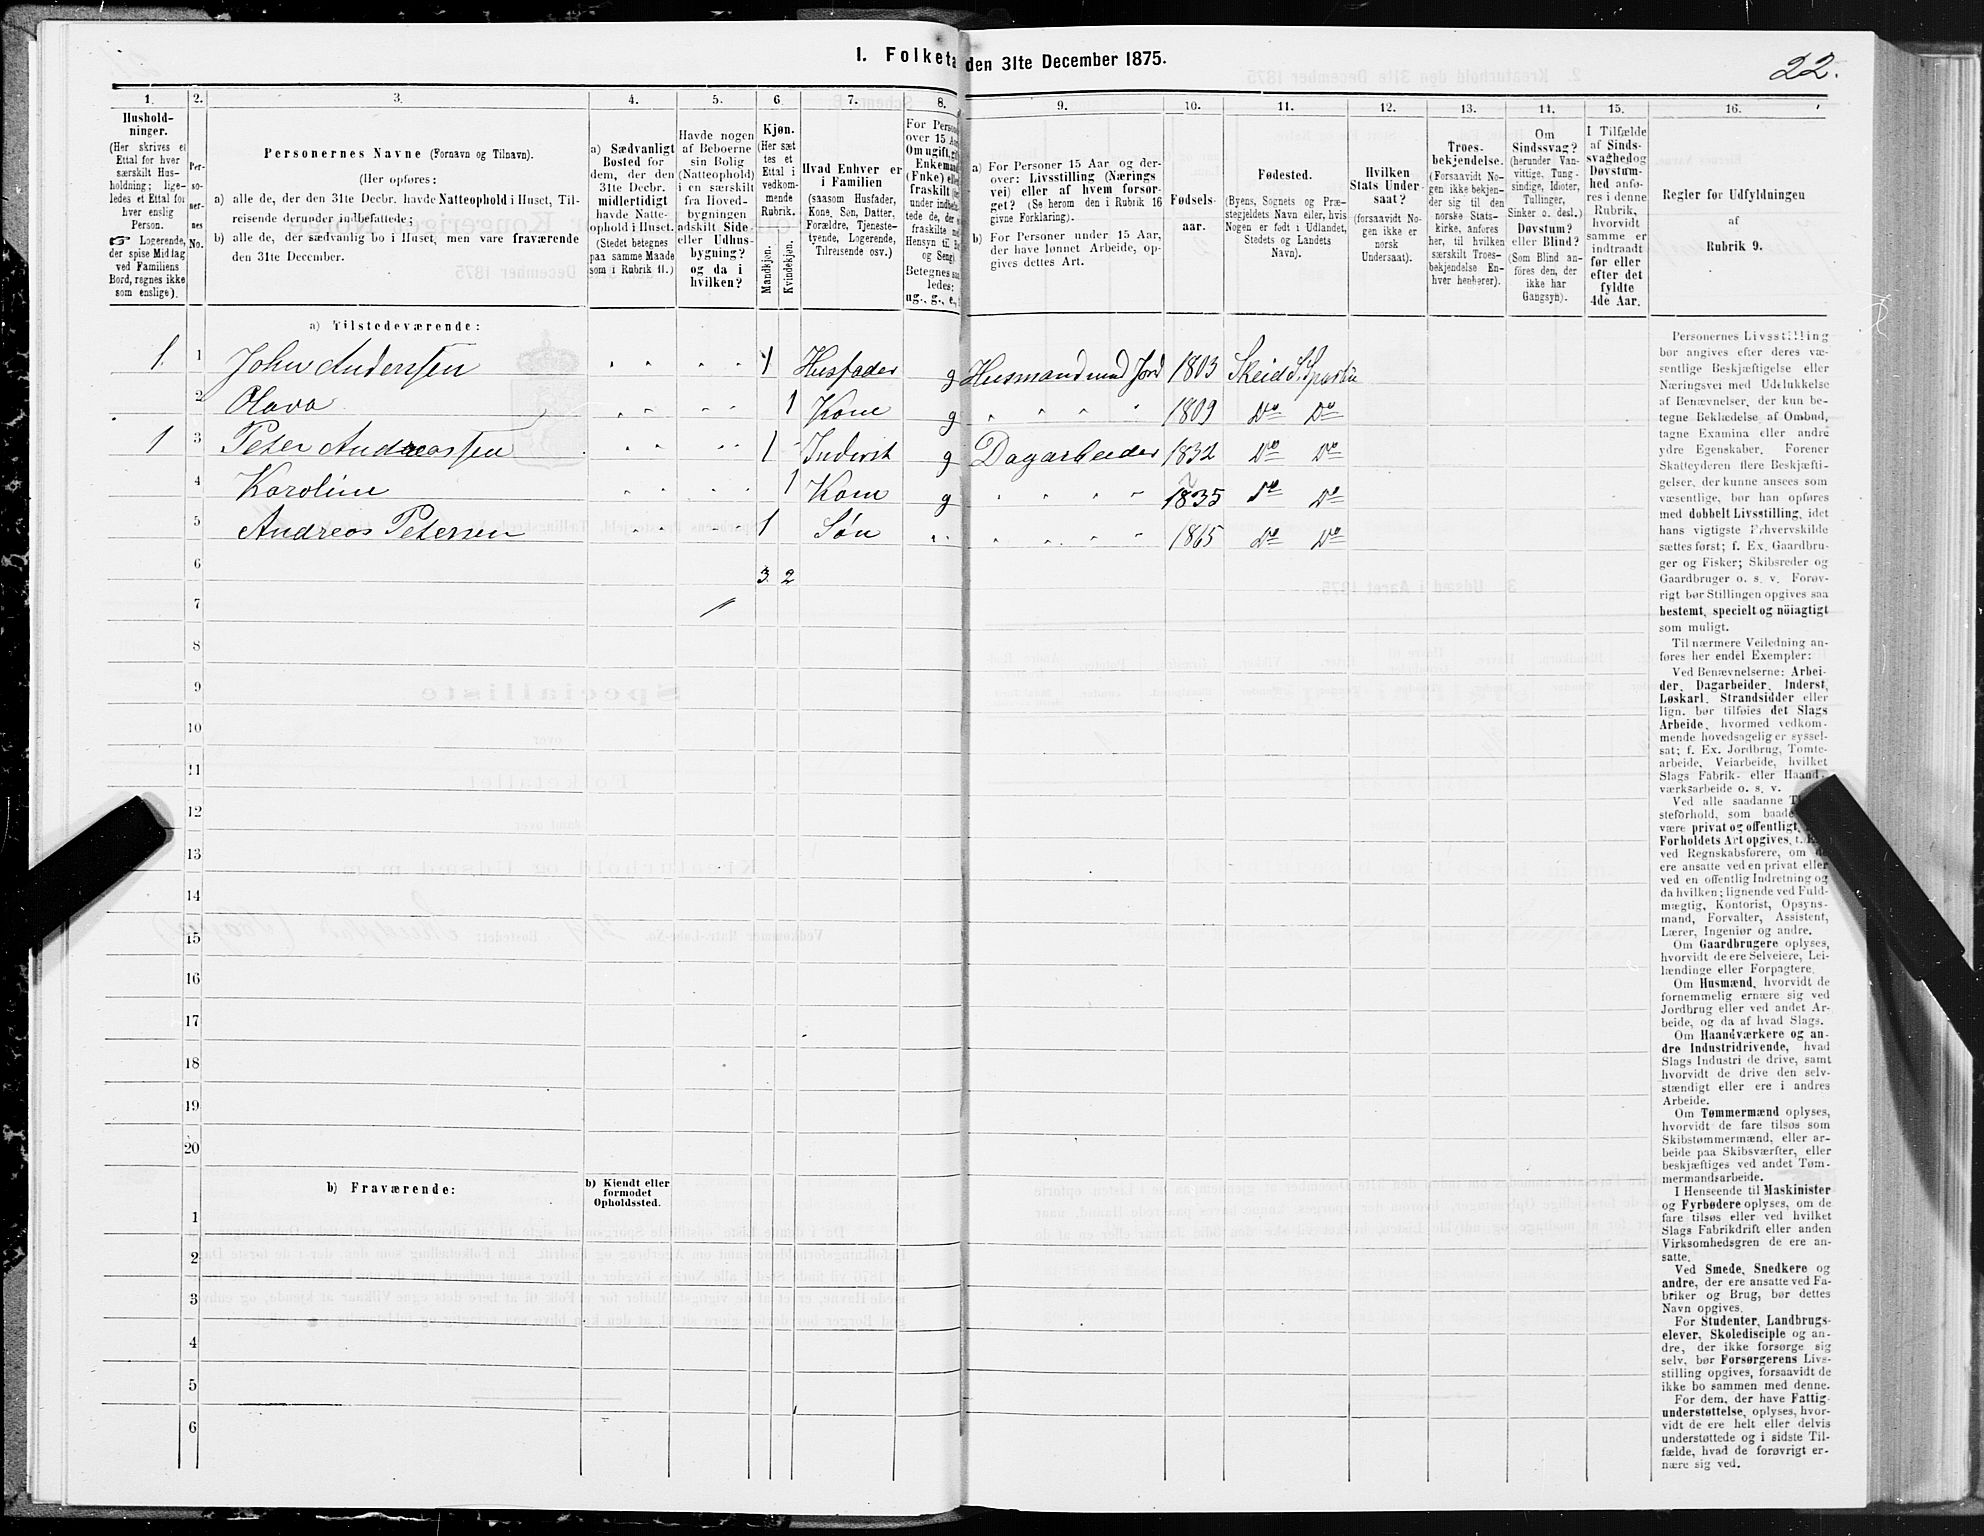 1. Folketa den 31te December 1875.
22.
1. 2. 3. 4. 5. 6. 7. 8. 9. 10. 11. 12. 13. 14. 15. 16.
Hushold-
ninger.
(Her skrives et
Ettal for hver
særskilt Hus-
holdning; lige-
ledes et Ettal for
hver enslig
Person.
☞ Logerende,
der spise Middag
ved Familiens
Bord, regnes ikke
som enslige).
Per-
so-
ner-
nes
No.
Personernes Navne (Fornavn og Tilnavn).
(Her opføres:
a) alle de, der den 31te Decbr. havde Natteophold i Huset, Til-
reisende derunder indbefattede;
b) alle de, der sædvanlig bo i Huset, men vare fraværende
den 31te December.
a) Sædvanligt
Bosted for
dem, der den
31te Decbr.
midlertidigt
havde Natte-
ophold i Huset.
(Stedet betegnes
paa samme Maade
som i Rubrik 11.)
Havde nogen
af Beboerne
sin Bolig
(Natteophold)
i en særskilt
fra Hoved-
bygningen
adskilt Side-
eller Udhus-
bygning?
og da i
hvilken?
Kjøn.
(Her sæt-
tes et
Ettal i
vedkom-
mende
Rubrik.
Mandkjøn.
Kvindekjøn.
Hvad Enhver er
i Familien
(saasom Husfader,
Kone, Søn, Datter,
Forældre, Tjeneste-
tyende, Logerende,
Tilreisende osv.)
For Person
over 15 Aa
Om ugift, gi
Enkeman
(Enke) ell
fraskilt
under indbe
tede de, der
fraskilte
Hensyn til B
og Seng)
Betegnes saa
ledes:
ug., g., e.,
a) For Personer 15 Aar og der-
over: Livsstilling (Nærings-
vei) eller af hvem forsør-
get? (Se herom den i Rubrik 16
givne Forklaring).
b) For Personer under 15 Aar,
der have lønnet Arbeide, op-
gives dettes Art.
Fødsels-
aar.
Fødested.
(Byens, Sognets og Præ-
stegjeldets Navn eller, hvis
Nogen er født i Udlandet,
Stedets og Landets
Navn).
Hvilken
Stats Under-
saat?
(forsaavidt No-
gen ikke er
norsk
Undersaat).
Troes-
bekjendelse.
(Forsaavidt No-
gen ikke bekjen-
der sig til den
norske Stats-
kirke, anføres
her, til hvilken
særskilt Troes-
bekjendelse En-
hver henhører).
Om
Sindssvag?
(herunder Van-
vittige, Tung-
sindige, Idioter,
Tullinger,
Sinker o. desl.)
Døvstum?
eller Blind?
(Som Blind an-
føres den, der
ikke har
Gangsyn).
I Tilfælde
af Sinds-
svaghed og
Døvstum-
hed anfø-
res i denne
Rubrik,
hvorvidt
samme er
indtraadt
før eller
efter det
fyldte
4de Aar.
Regler for Udfyldningen
af
Rubrik 9.
a) Tilstedeværende:
1 1 John Andersen " " " " 1 Husfader g Husmand med Jord 1803 Skeid S. Sparbu
2 Olava " " " " 1 Kone g " " " " 1809 Do Do
1 3 Peter Andreassen " " " " 1 Inderst g Dagarbeider 1832 Do Do
4 Karoline " " " " 1 Kone g " " " " 1835 Do Do
5 Andreas Petersen " " " " 1 Søn " " " " " " 1865 Do Do
6 3 2
7
8
9
10
11
12
13
14
15
16
17
18
19
20
b) Fraværende:
b) Kiendt eller
formodet
Opholdssted.
1
2
3
4
5
6
Personernes Livsstilling
bør angives efter deres væ-
sentlige Beskjæftigelse eller
Næringsvei med Udelukkelse
af Benævnelser, der kun be-
tegne Beklædelse af Ombud,
tagne Examina eller andre
ydre Egenskaber. Forener
Skatteyderen flere Beskjæfti-
gelser, der kunne ansees som
væsentlige, bør han opføres
med dobbelt Livsstilling, idet
hans vigtigste Erhvervskilde
sættes først; f. Ex. Gaardbru-
ger og Fisker; Skibsreder og
Gaardbruger o. s. v. Forøv-
rigt bør Stillingen opgives saa
bestemt, specielt og nöiagtigt
som muligt.
Til nærmere Veiledning an-
føres her endel Exempler:
Ved Benævnelserne: Arbei-
der, Dagarbeider, Inderst,
Løskarl, Strandsidder eller
lign. bør tilføies det Slags
Arbeide, hvormed vedkom-
mende hovedsagelig er syssel-
sat; f. Ex. Jordbrug, Tomte-
arbeide, Veiarbeide, hvilket
Slags Fabrik- eller Haand-
værksarbeide o. s. v.
Ved alle saadanne
steforhold, som baade
være privat og offentligt,
Forholdets Art opgives,
ved Regnskabsførere, om
ere ansatte ved en privat eller
ved en offentlig Indretning og
da hvilken; lignende ved Fuld-
mægtig, Kontorist, Opsyns-
mand, Forvalter, Assistent,
Lærer, Ingeniør og andre.
Om Gaardbrugere oplyses,
hvorvidt de ere Selveiere, Lei-
lændinge eller Forpagtere.
Om Husmænd, hvorvidt de
fornemmelig ernære sig ved
Jordbrug eller ved andet Ar-
beide, og da af hvad Slags.
Om Haandværkere og an-
dre Industridrivende, hvad
Slags Industri de drive, samt
hvorvidt de drive den selv-
stændigt eller ere i andres
Arbeide.
Om Tømmermænd oplyses,
hvorvidt de fare tilsøs som
Skibstømmermænd, eller ar-
beide paa Skibsværfter, eller
beskjæftiges ved andet Tøm-
mermandsarbeide.
I Henseende til Maskinister
og Fyrbødere oplyses, om de
fare tilsøs eller ved hvilket
Slags Fabrikdrift eller anden
Virksomhedsgren de ere an-
satte.
Ved Smede, Snedkere og
andre, der ere ansatte ved Fa-
briker og Brug, bør dettes
Navn opgives.
For Studenter, Landbrugs-
elever, Skoledisciple og an-
dre, der ikke forsørge sig
selv, bør Forsørgerens Livs-
stilling opgives, forsaavidt de
ikke bo sammen med denne.
For dem, der have Fattig-
understøttelse, oplyses, hvor-
vidt de ere helt eller delvis
understøttede og i sidste Til-
fælde, hvad de forøvrigt er-
nære sig ved.